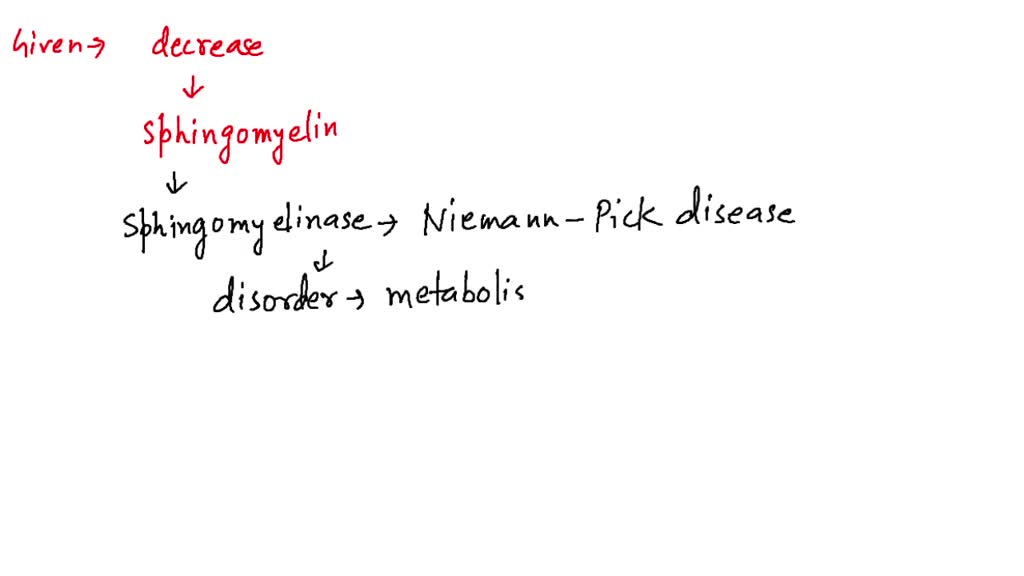 Given → decrease
↓
Sphingomyelin
↓
Sphingomyelinase → Niemann - Pick disease
↓
disorder → metabolis